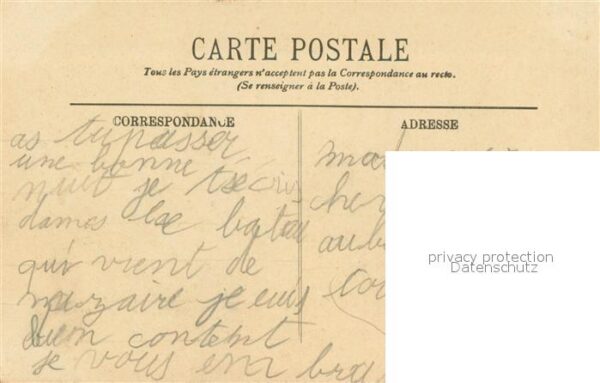 CARTE POSTALE
Tous les Pays étrangers n'acceptent pas la Correspondance au recto.
(Se renseigner à la Poste).
CORRESPONDANCE
as tu passer
une bonne
nuit je t'écris
dams lae bateau
qui vient de
mazaire je suis
bien content
je vous em bra
ADRESSE
privacy protection
Datenschutz